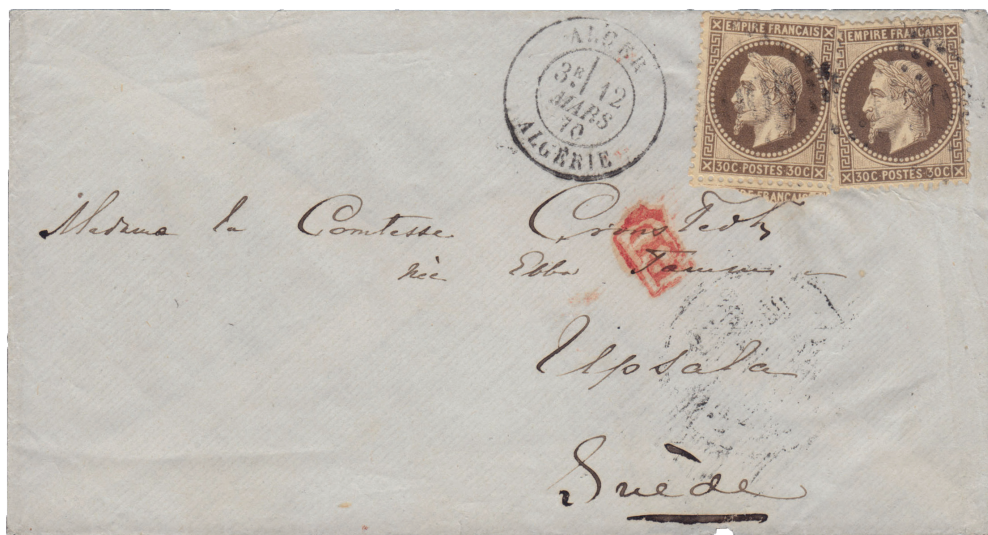 ALGER
3E 12
MARS
70
ALGÉRIE
EMPIRE FRANÇAIS
30C·POSTES·30C
FRANÇAIS
EMPIRE FRANÇAIS
30C·POSTES·30C
Madame la Comtesse Cronstedt
née Ebba Tamm
Upsala
Suède